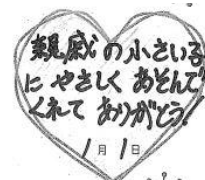 親戚の小さい子
にやさしくあそんで
くれてありがとう!
1月1日